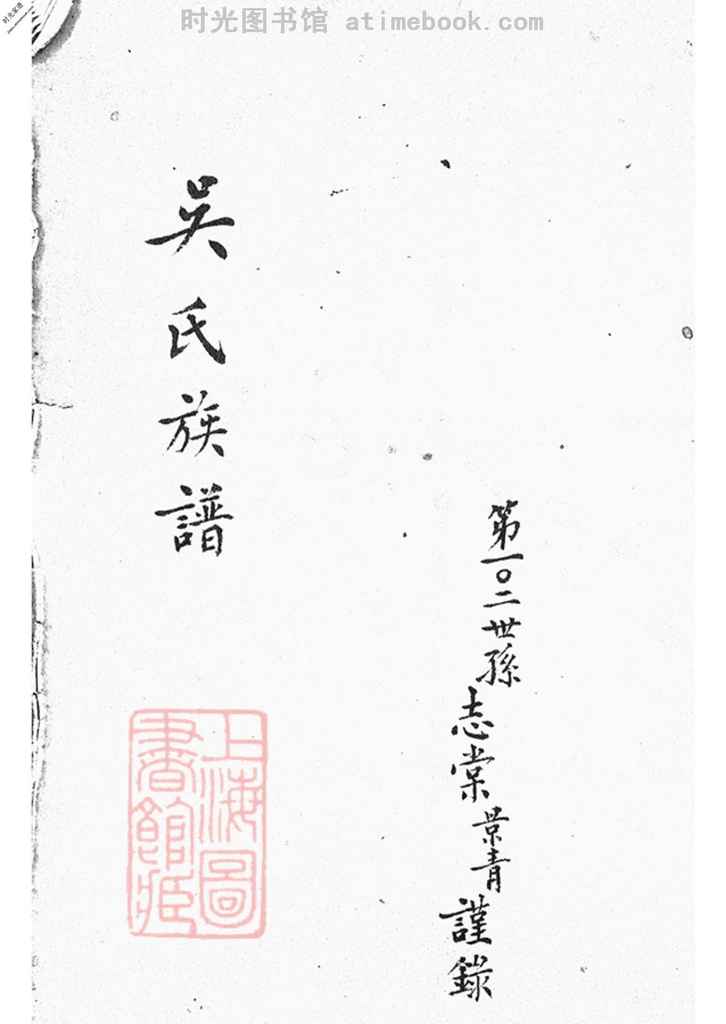 时光图书馆 atimebook.com
第一〇二世孫志棠景青謹錄
吳氏族譜
上海圖書館藏